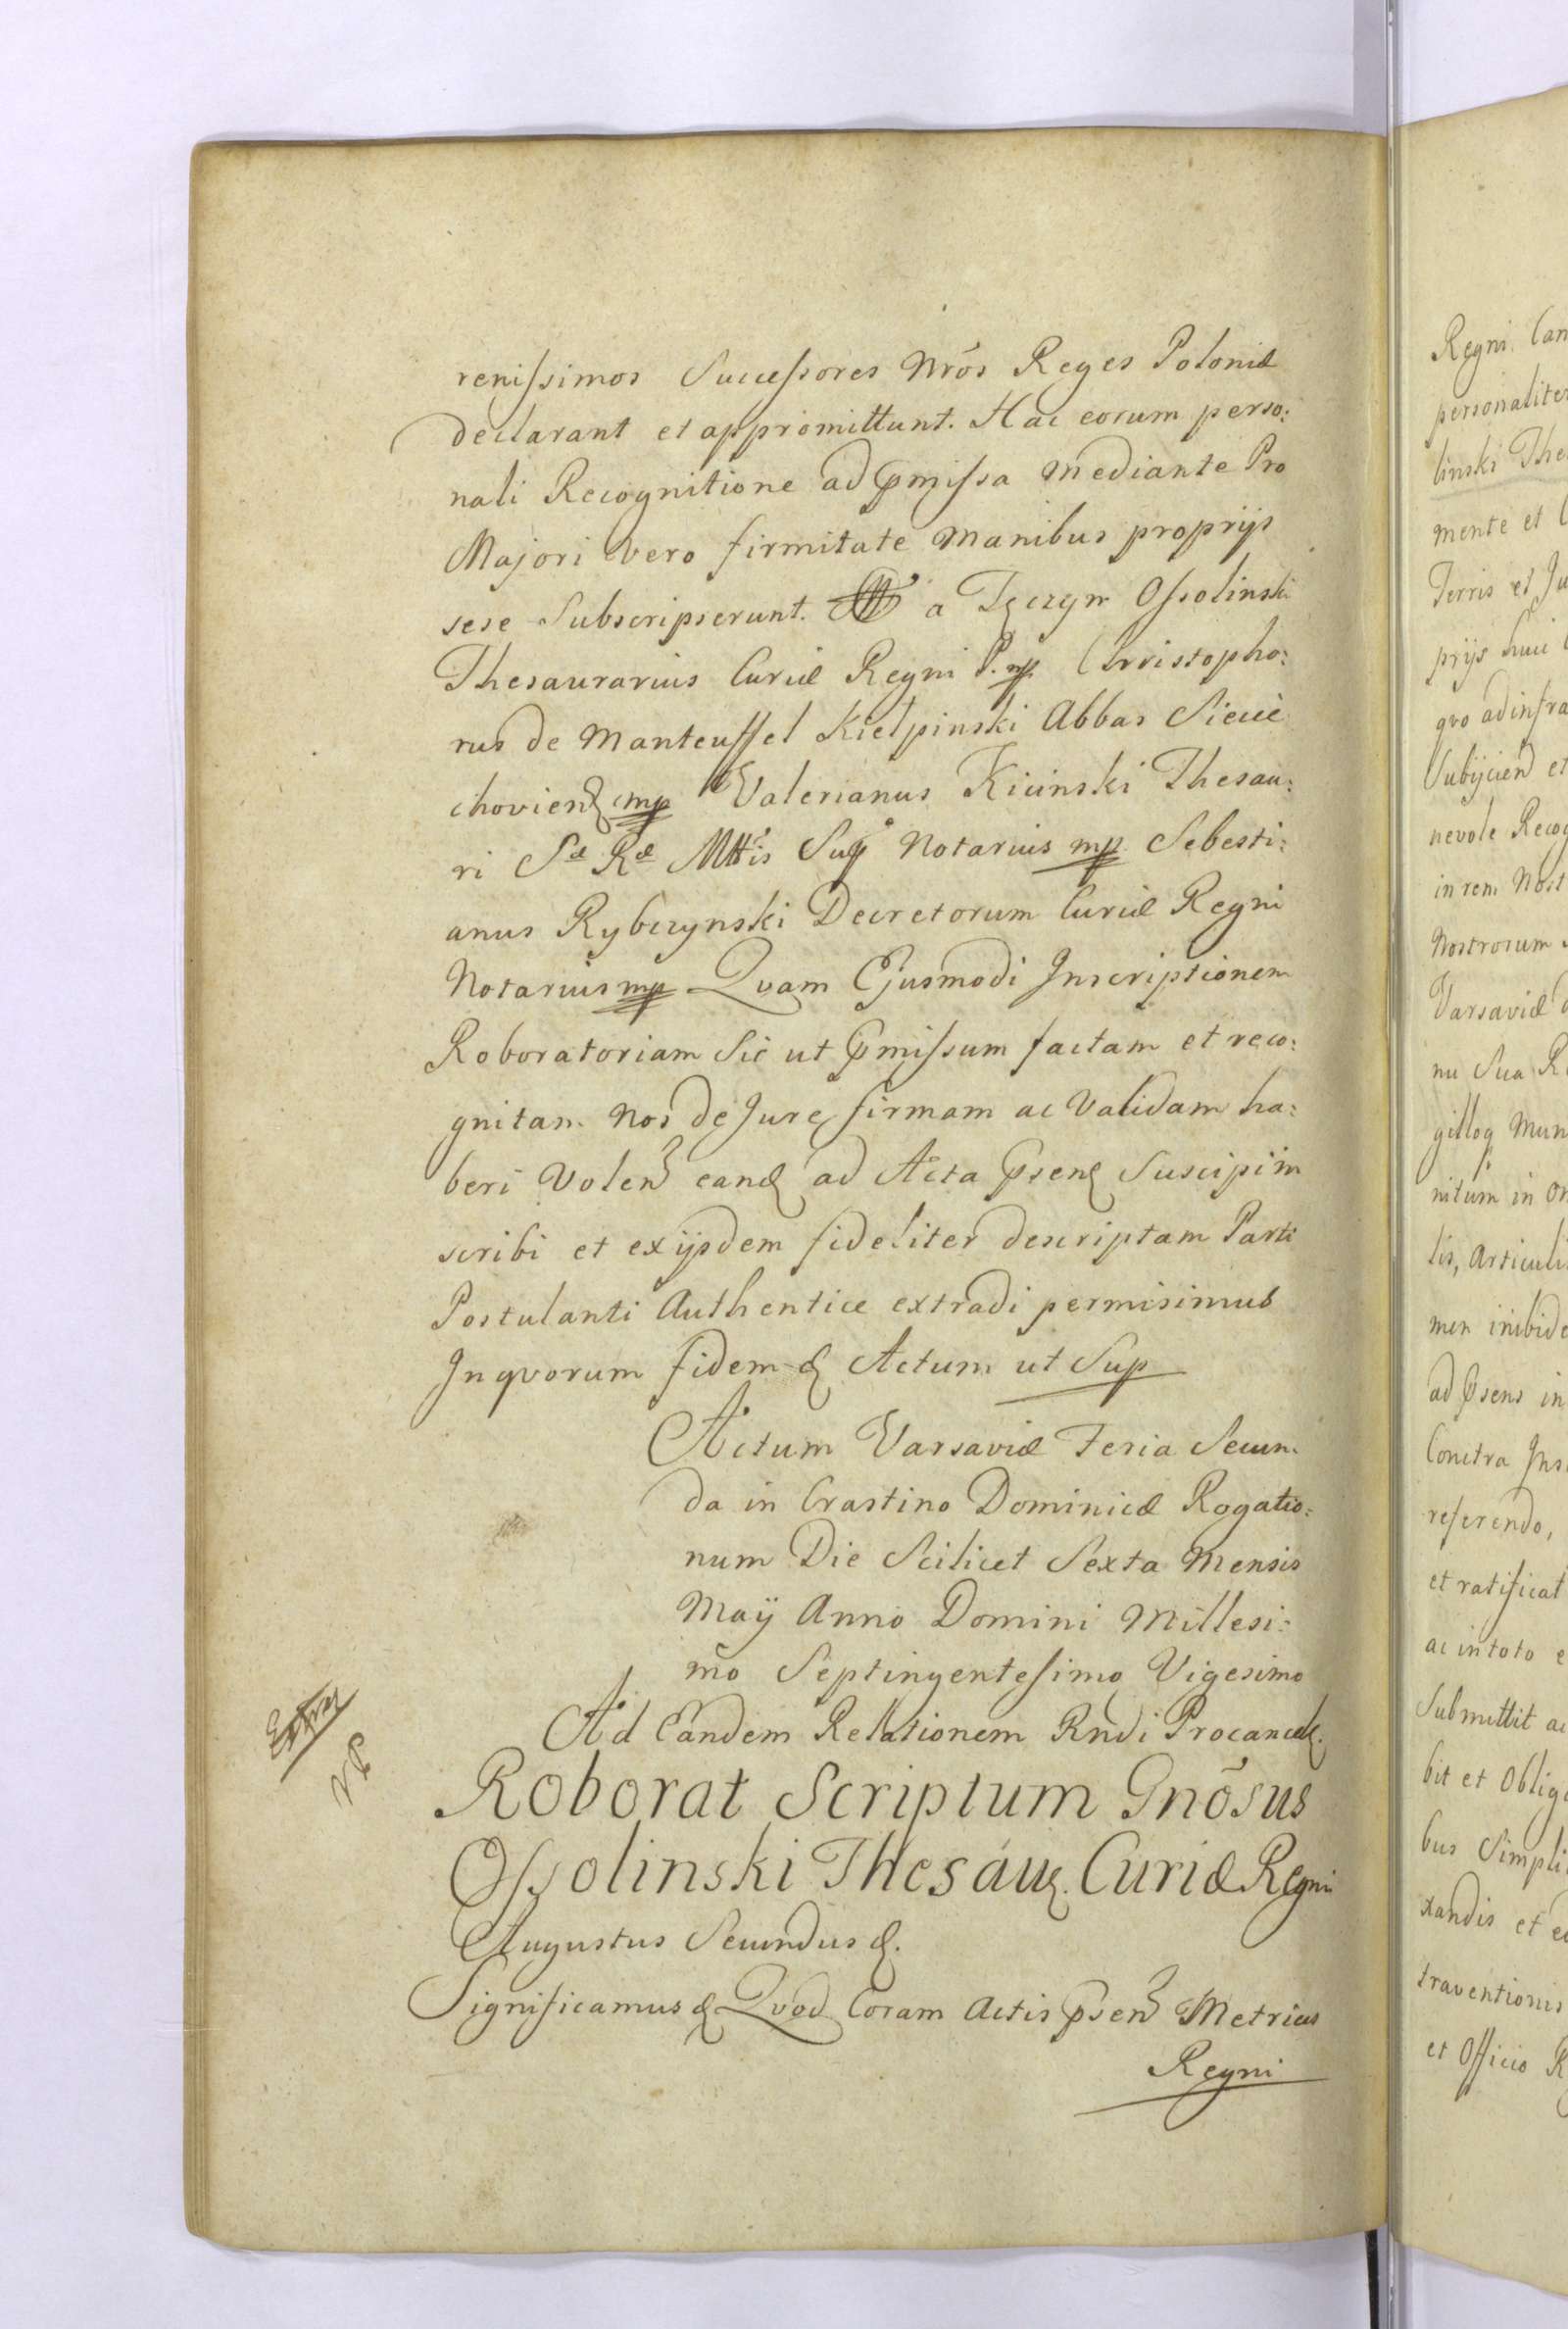 renissimos Successores Nrõs Reges Poloniæ
declarant et appromittunt. Hac eorum perso:
nali Recognitione ad pmissa mediante Pro
Majori vero firmitate manibus proprijs
sese Subscripserunt. a Tęczyn Ossolinski
Thesaurarius Curiæ Regni P. mp Chrristopho:
rus de Manteuffel Kielpinski Abbas Siecie
choviens mp Valerianus Kicinski Thesau:
ri Sæ Ræ Mttis Suę Notarius mp Sebesti:
anus Rybczynski Decretorum Curiæ Regni
Notarius mp Qvam Ejusmodi Inscriptionem
Roboratoriam Sic ut pmissum factam et reco:
gnitam Nos de Jure firmam ac Validam ha:
beri Volen eand ad Acta psen Suscipi in
scribi et ex ijsdem fideliter descriptam Parti
Postulanti Authentice extradi permisimus
In qvorum fidem & Actum ut Sup
Actum Varsaviæ Feria Secun:
da in Crastino Dominicæ Rogatio:
num Die Scilicet Sexta Mensis
Maÿ Anno Domini Millesi:
mo Septingentesimo Vigesimo
Ad Eandem Relationem Rndi Procancel.
Roborat Scriptum Gnõsus
Ossolinski Thesau. Curiæ Regni
Augustus Secundus &.
Significamus & Qvod Coram Actis psen Metrices
Regni
Regni Can
personaliter
linski The
mente et
Terris et Ju
prijs huic
qvo ad infra
Subijcien et
nevole Recog
in rem Nost
Nostrorum
Varsaviæ
nu Sua R
gilloq Mun
nitum in
lis, Articuli
men inibide
ad psens in
Conctra Ins
referendo,
et ratificat
ac in toto e
Submittit ac
bit et Oblig
bus Simpli
xandis et
traventionis
et Officio R